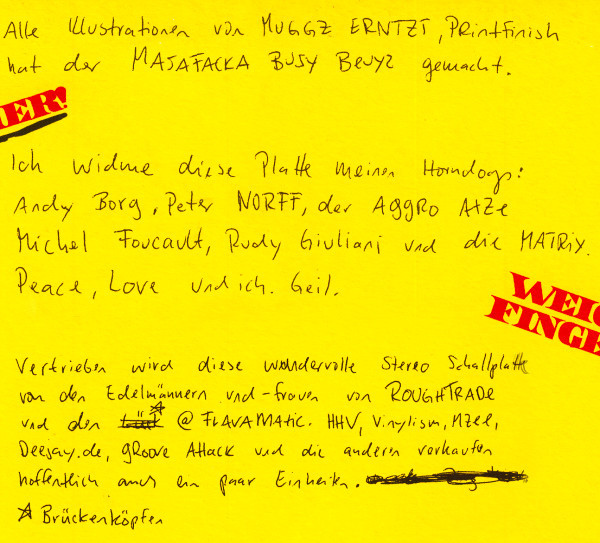 Alle Illustrationen von MUGGZ ERNTZT, Printfinish
hat der MAJAFACKA BUSY BEUYZ gemacht.
IER!
Ich widme diese Platte meinen Horndogs:
Andy Borg, Peter NORFF, der AGGRO ATZE
Michel Foucault, Rudy Giuliani und die MATRIX.
Peace, Love und ich. Geil.
WEIC
FINGE
Vertrieben wird diese wundervolle Stereo Schallplatte
von den Edelmännern und -frauen von ROUGHTRADE
und den @ FLAVAMATIC. HHV, Vinylism, MZEE,
Deejay.de, GROOVE Attack und die anderen verkaufen
hoffentlich auch ein paar Einheiten.
☆ Brückenköpfen